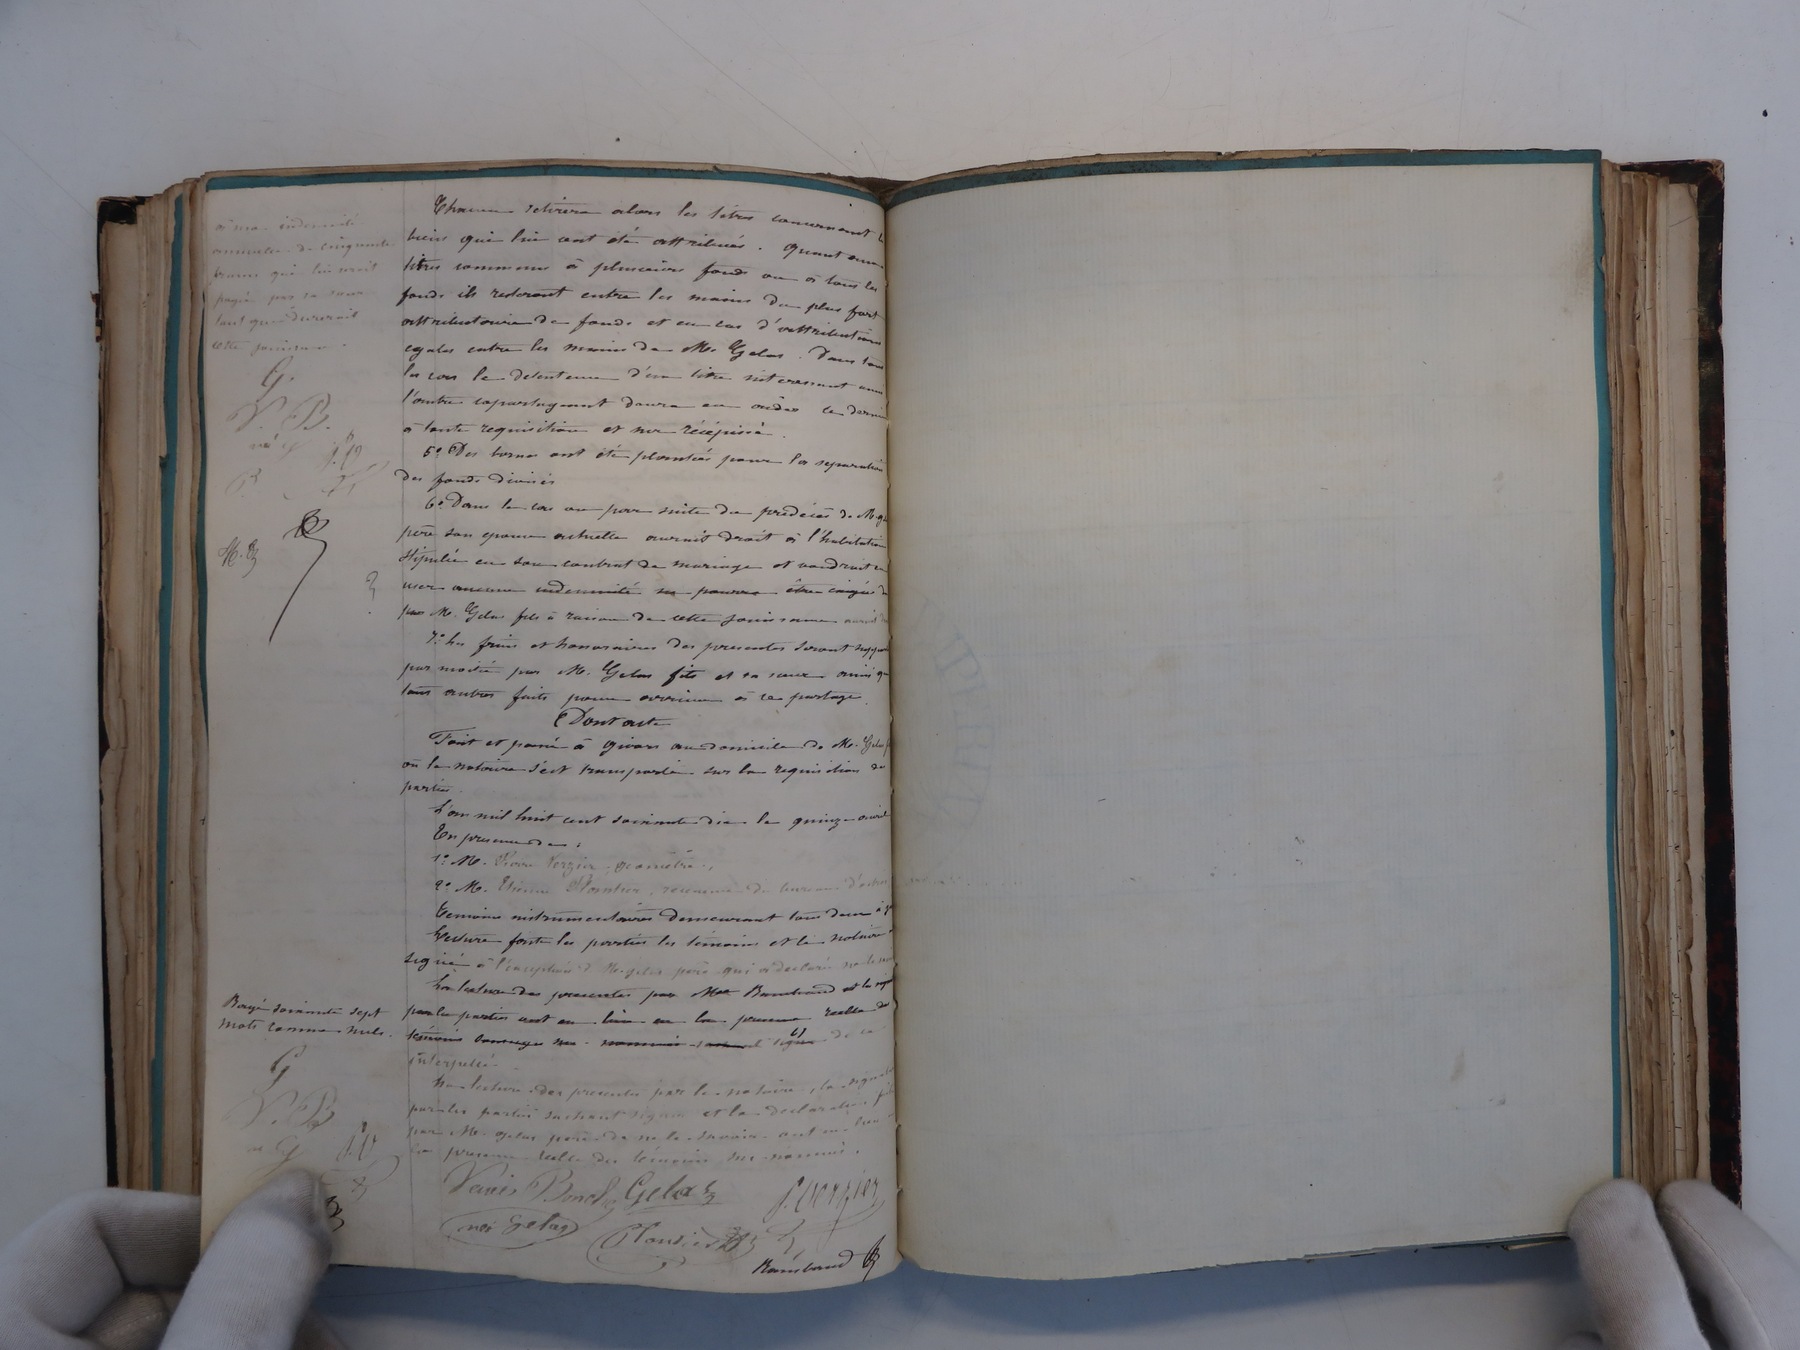 à une indemnité
annuelle de cinquante
francs qui lui serait
payée par sa sœur
tant que durerait
cette jouissance.
G.
V. B.
née G
J. V
P
M. G
Chacun retirera alors les titres concernant les
biens qui lui ont été attribués. Quant aux
titres communs à plusieurs fonds ou à tous les
fonds ils resteront entre les mains du plus fort
attributaire de fonds et en cas d'attributions
egales entre les mains de M. Gelas. Dans tous
les cas le detenteur d'un titre interessant aussi
l'autre copartageant devra en aider ce dernier
à toute requisition et sur récépissé.
5° Des bornes ont été plantées pour la separation
des fonds divisés
6° Dans le cas ou par suite du predécès de M. Gelas
père son epouse actuelle aurait droit à l'habitation
stipulée en son contrat de mariage et voudrait en
user aucune indemnité ne pourra être exigée
par M. Gelas fils à raison de cette jouissance
7° Les frais et honoraires des presentes seront supportés
par moitié par M. Gelas fils et sa sœur ainsi que
tous autres faits pour arriver à ce partage.
Dont acte
Fait et passé à Givors au domicile de M. Gelas
où le notaire s'est transporté sur la requisition des
parties.
L'an mil huit cent soixante dix le quinze avril
En presence de :
1° M. Pierre Verzier, géomètre,
2° M. Etienne Plantier, receveur du bureau d'octroi
Temoins instrumentaires demeurant tous deux à
Lecture faite les parties les témoins et le notaire
signé à l'exception de M. Gelas père qui a déclaré ne le savoir
La lecture des presentes par Me Rambaud et la signature
par les parties ont eu lieu en la presence reelle des
témoins
interpellé.
La lecture des presentes par le notaire, la signature
par les parties sachant signer et la déclaration faite
par M. Gelas père de ne le savoir ont eu lieu
la presence reelle des témoins sus-nommés.
Rayé soixante sept
mots comme nuls.
G
V. B
née G
J. V
Gelas
J. Verzier
née Gelas
Plantier
Rambaud